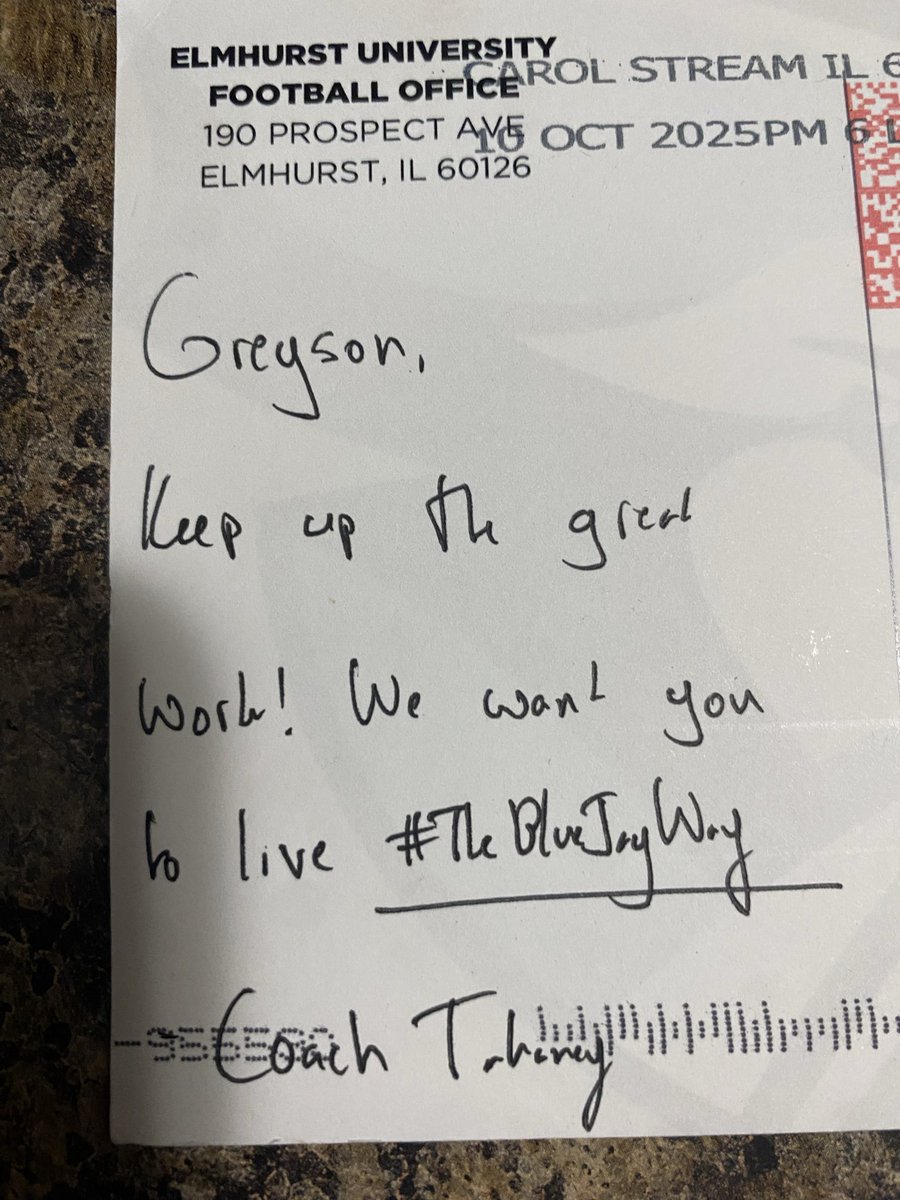 ELMHURST UNIVERSITY
FOOTBALL OFFICE
190 PROSPECT AVE
ELMHURST, IL 60126
CAROL STREAM IL 6
10 OCT 2025PM 6 L
Greyson,
Keep up the great
work! We want you
to live #TheBlueJayWay
Coach